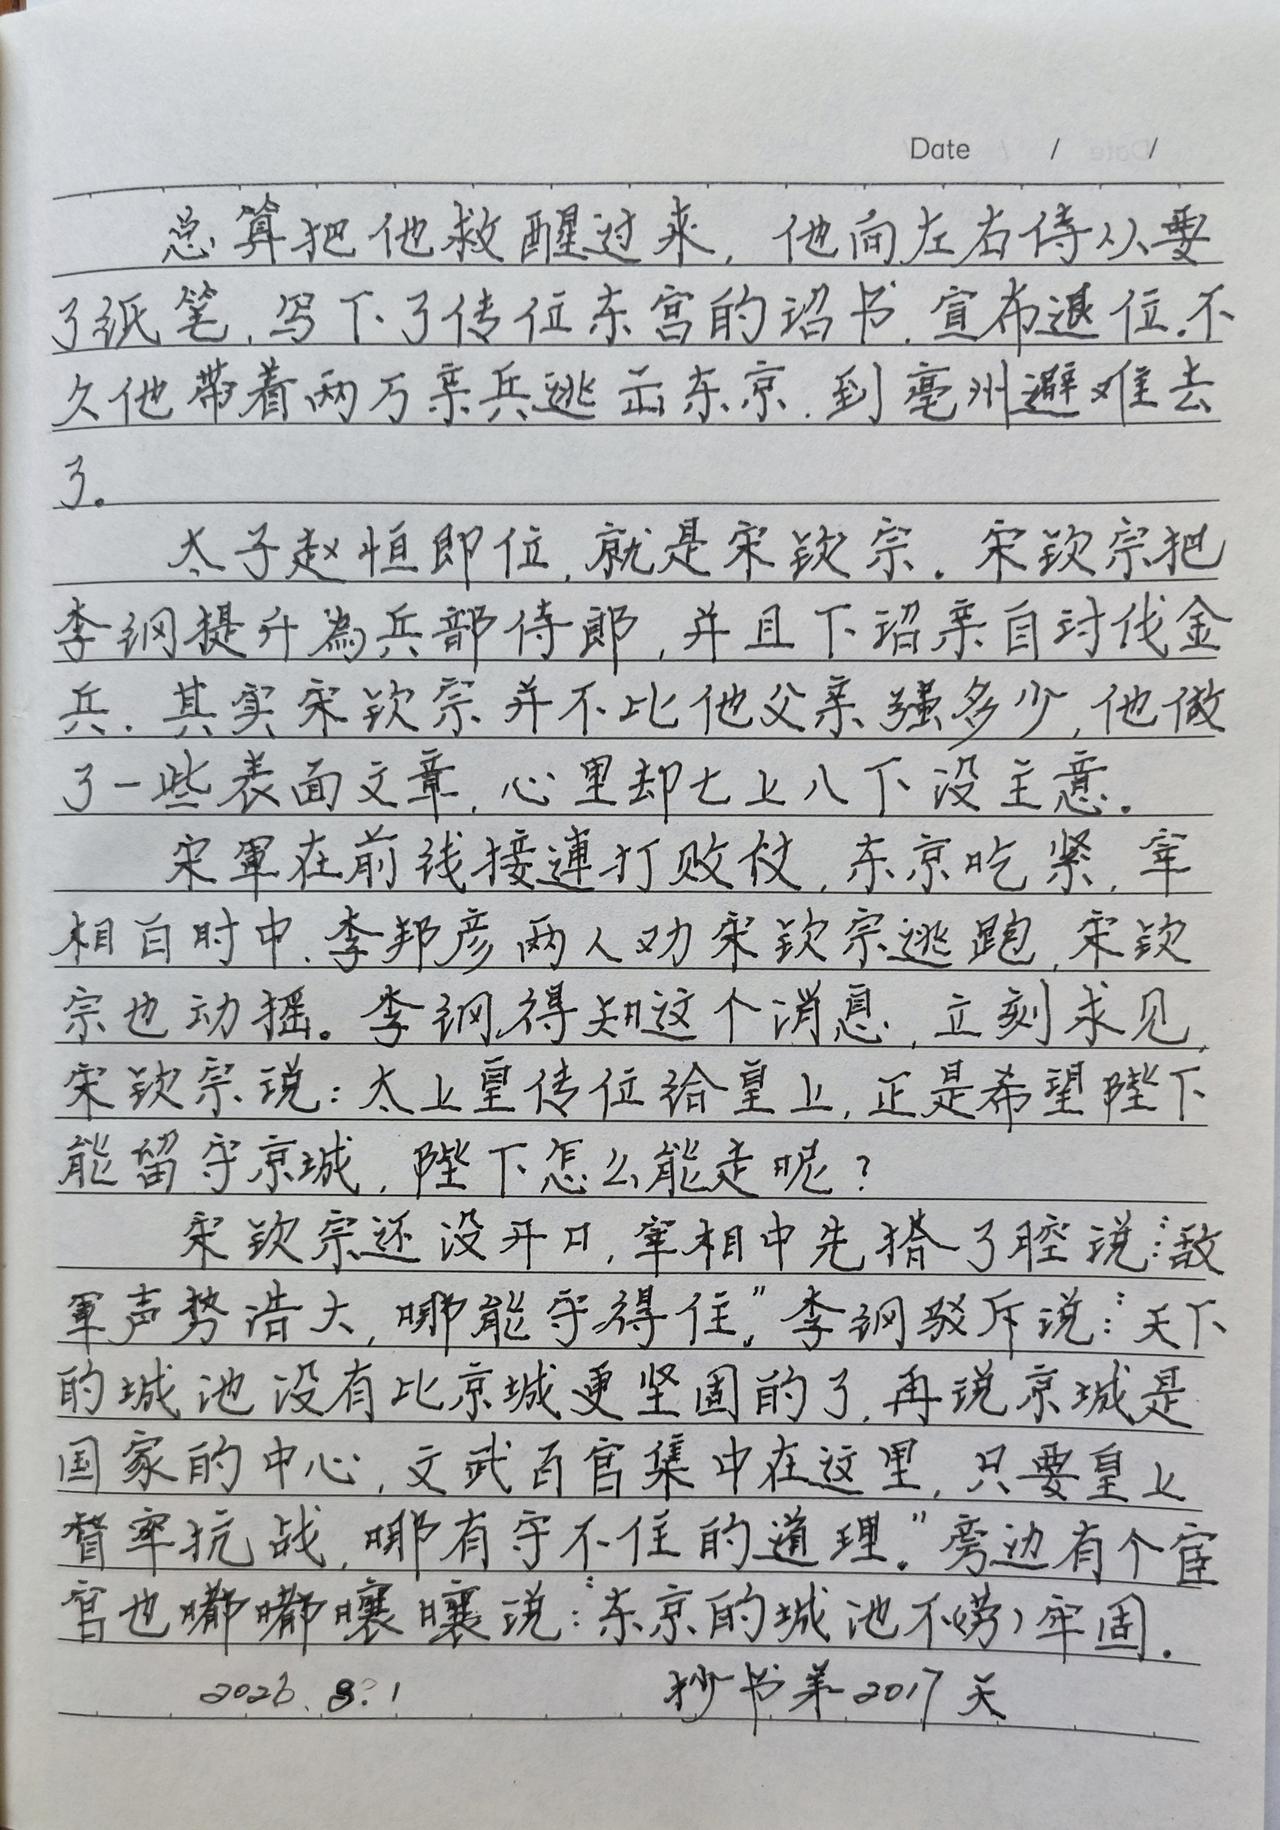 Date / /
总算把他救醒过来,他向左右侍从要
了纸笔,写下了传位东宫的诏书.宣布退位.不
久他带着两万亲兵逃出东京.到亳州避难去
了。
太子赵恒即位,就是宋钦宗.宋钦宗把
李纲提升為兵部侍郎,并且下诏亲自讨伐金
兵.其实宋钦宗并不比他父亲强多少,他做
了一些表面文章,心里却七上八下没主意.
宋軍在前线接連打败仗,东京吃紧,宰
相白时中.李邦彦两人劝宋钦宗逃跑,宋钦
宗也动摇。李纲得知这个消息,立刻求见,
宋钦宗说:太上皇传位给皇上,正是希望陛下
能留守京城,陛下怎么能走呢?
宋钦宗还没开口,宰相中先搭了腔说:“敌
軍声势浩大,哪能守得住。”李纲驳斥说:“天下
的城池没有比京城更坚固的了,再说京城是
国家的中心,文武百官集中在这里,只要皇上
督率抗战,哪有守不住的道理。”旁边有个宦
官也嘟嘟嚷嚷说:“东京的城池不(够)牢固.
2026.8.1 抄书第2017天